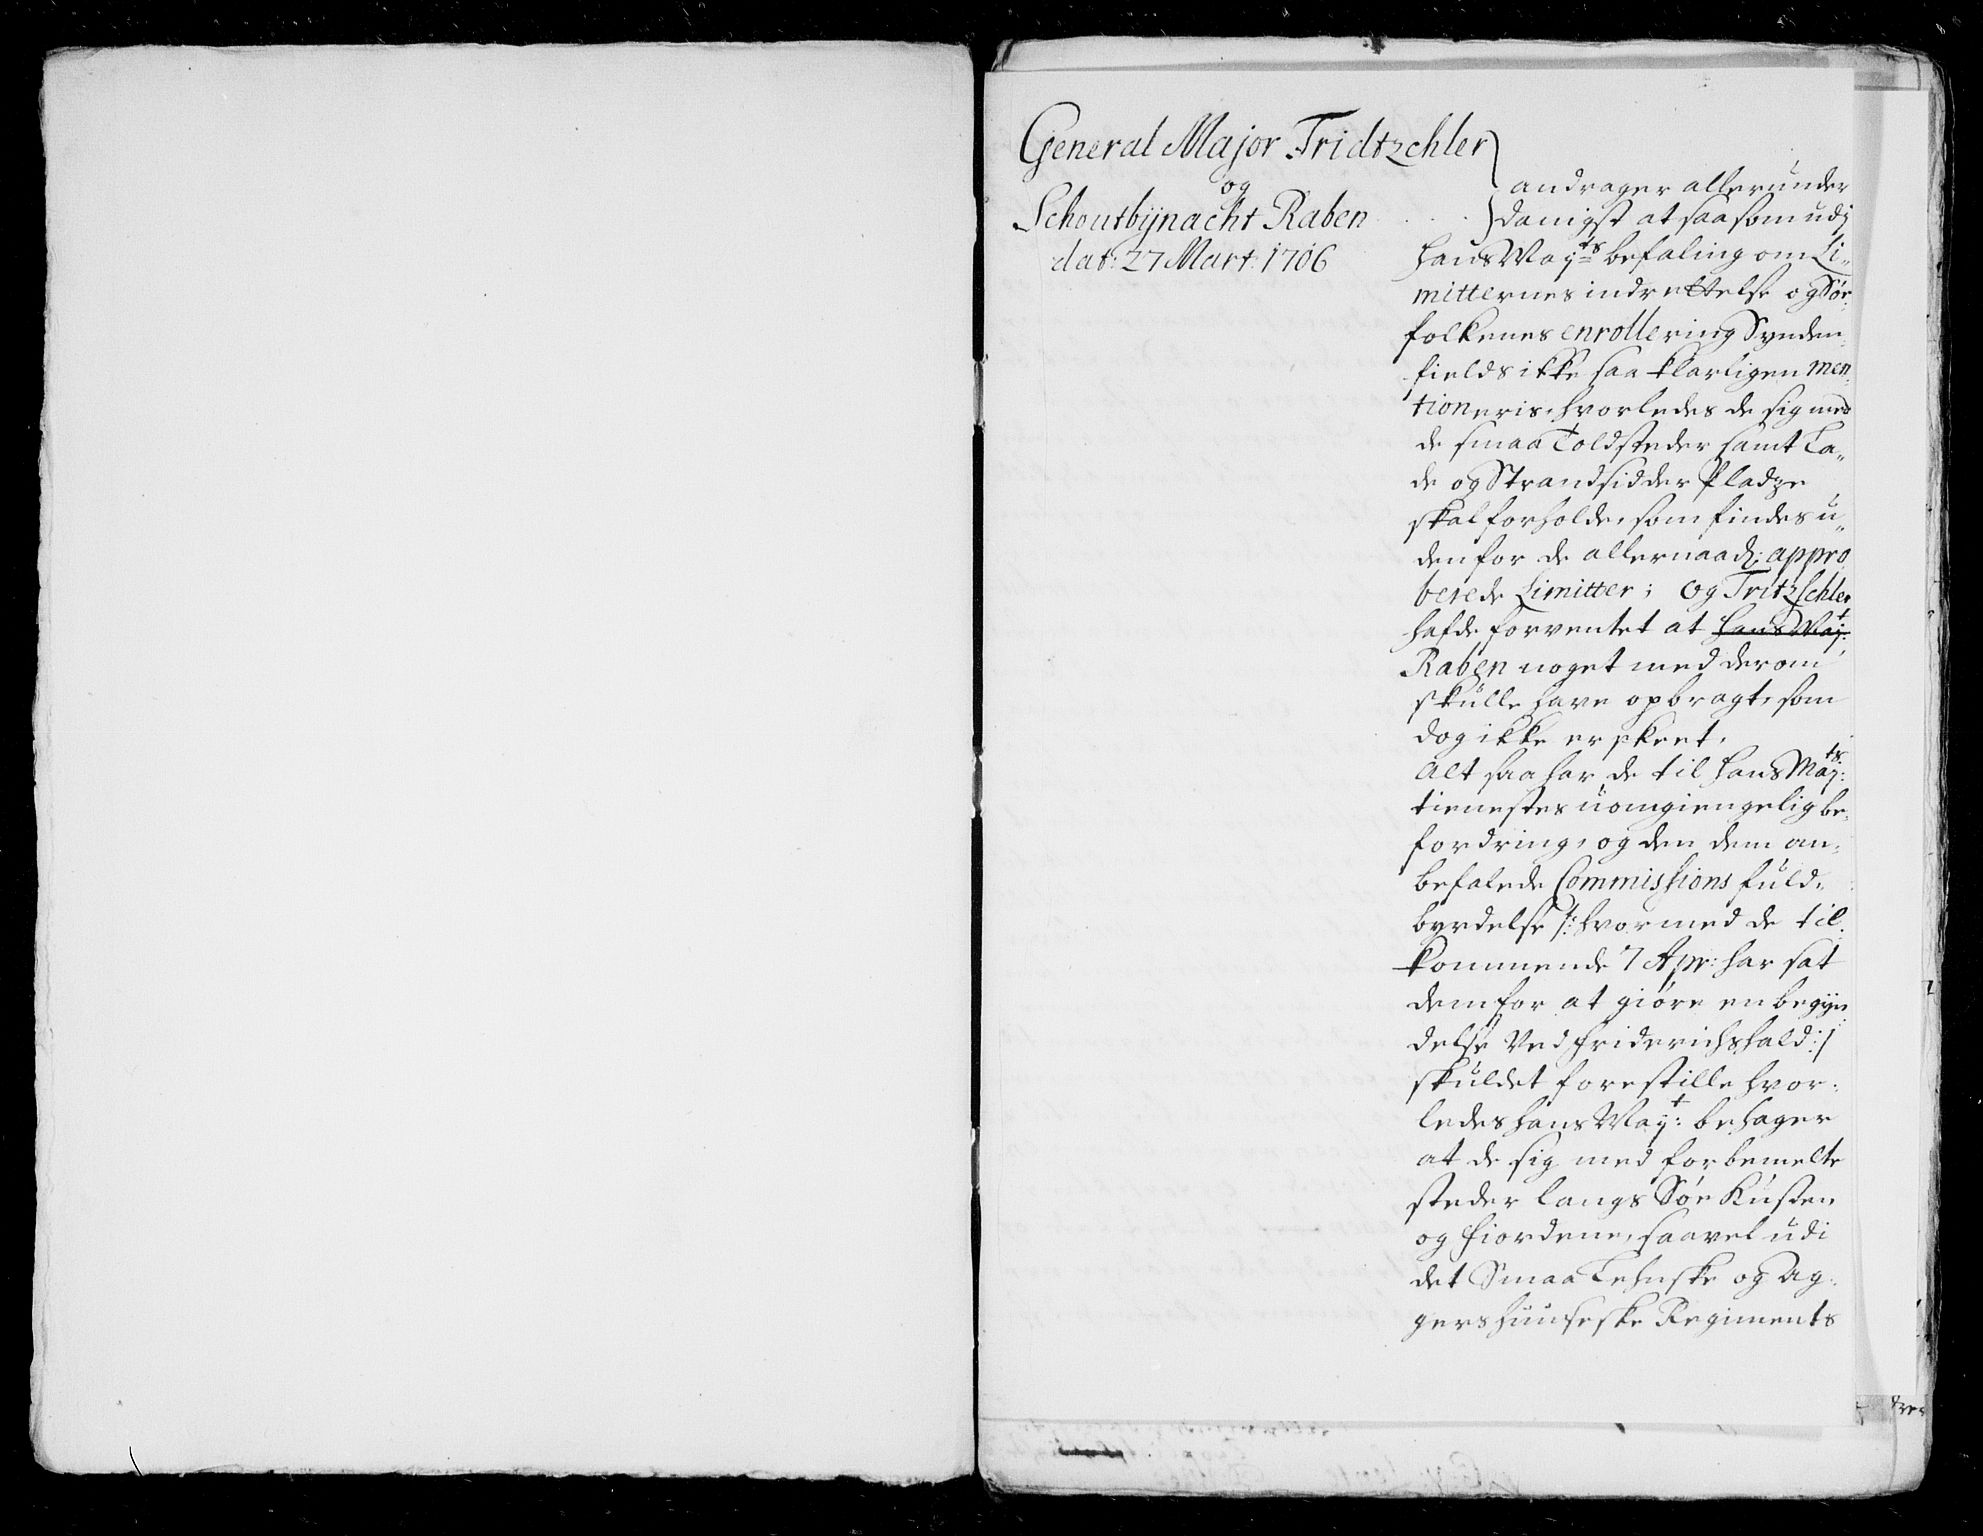 General Major Tridtzchler
og
Schoutbÿnacht Raben
dat: 27 Mart: 1706
andrager allerunder
danigst at saasom udj
hans Maÿts befaling om Li„
mitternes indrettelse og Søe
folkenes enrollering Synden
fields ikke saa klarligen men
tioneris, hvorledes de sig med
de smaa Toldsteder samt La„
de og Strandsidder Pladze
skal forholde, som findes u„
den for de allernaad: appro
berede Limitter; og Tritzschler
hafde forventet at hans Maÿt:
Raben noget med derom
skulle have opbragt, som
dog ikke er skeet.
Alt saa har de til hans Maÿts:
tienestes uomgiengelig be„
fordring, og den dem an„
befalede Commissions fuld„
byrdelse /: hvormed de til„
kommende 7 Apr: har sat
dem for at giøre en begÿn
delse ved Friderichshald :/
skuldet forestille hvor„
ledes hans Maÿt: behager
at de sig med forbemelte
steder langs Søe Küsten
og fiordene, saavel udi
det Smaa Lehnske og Ag„
gershuuseske Regiments